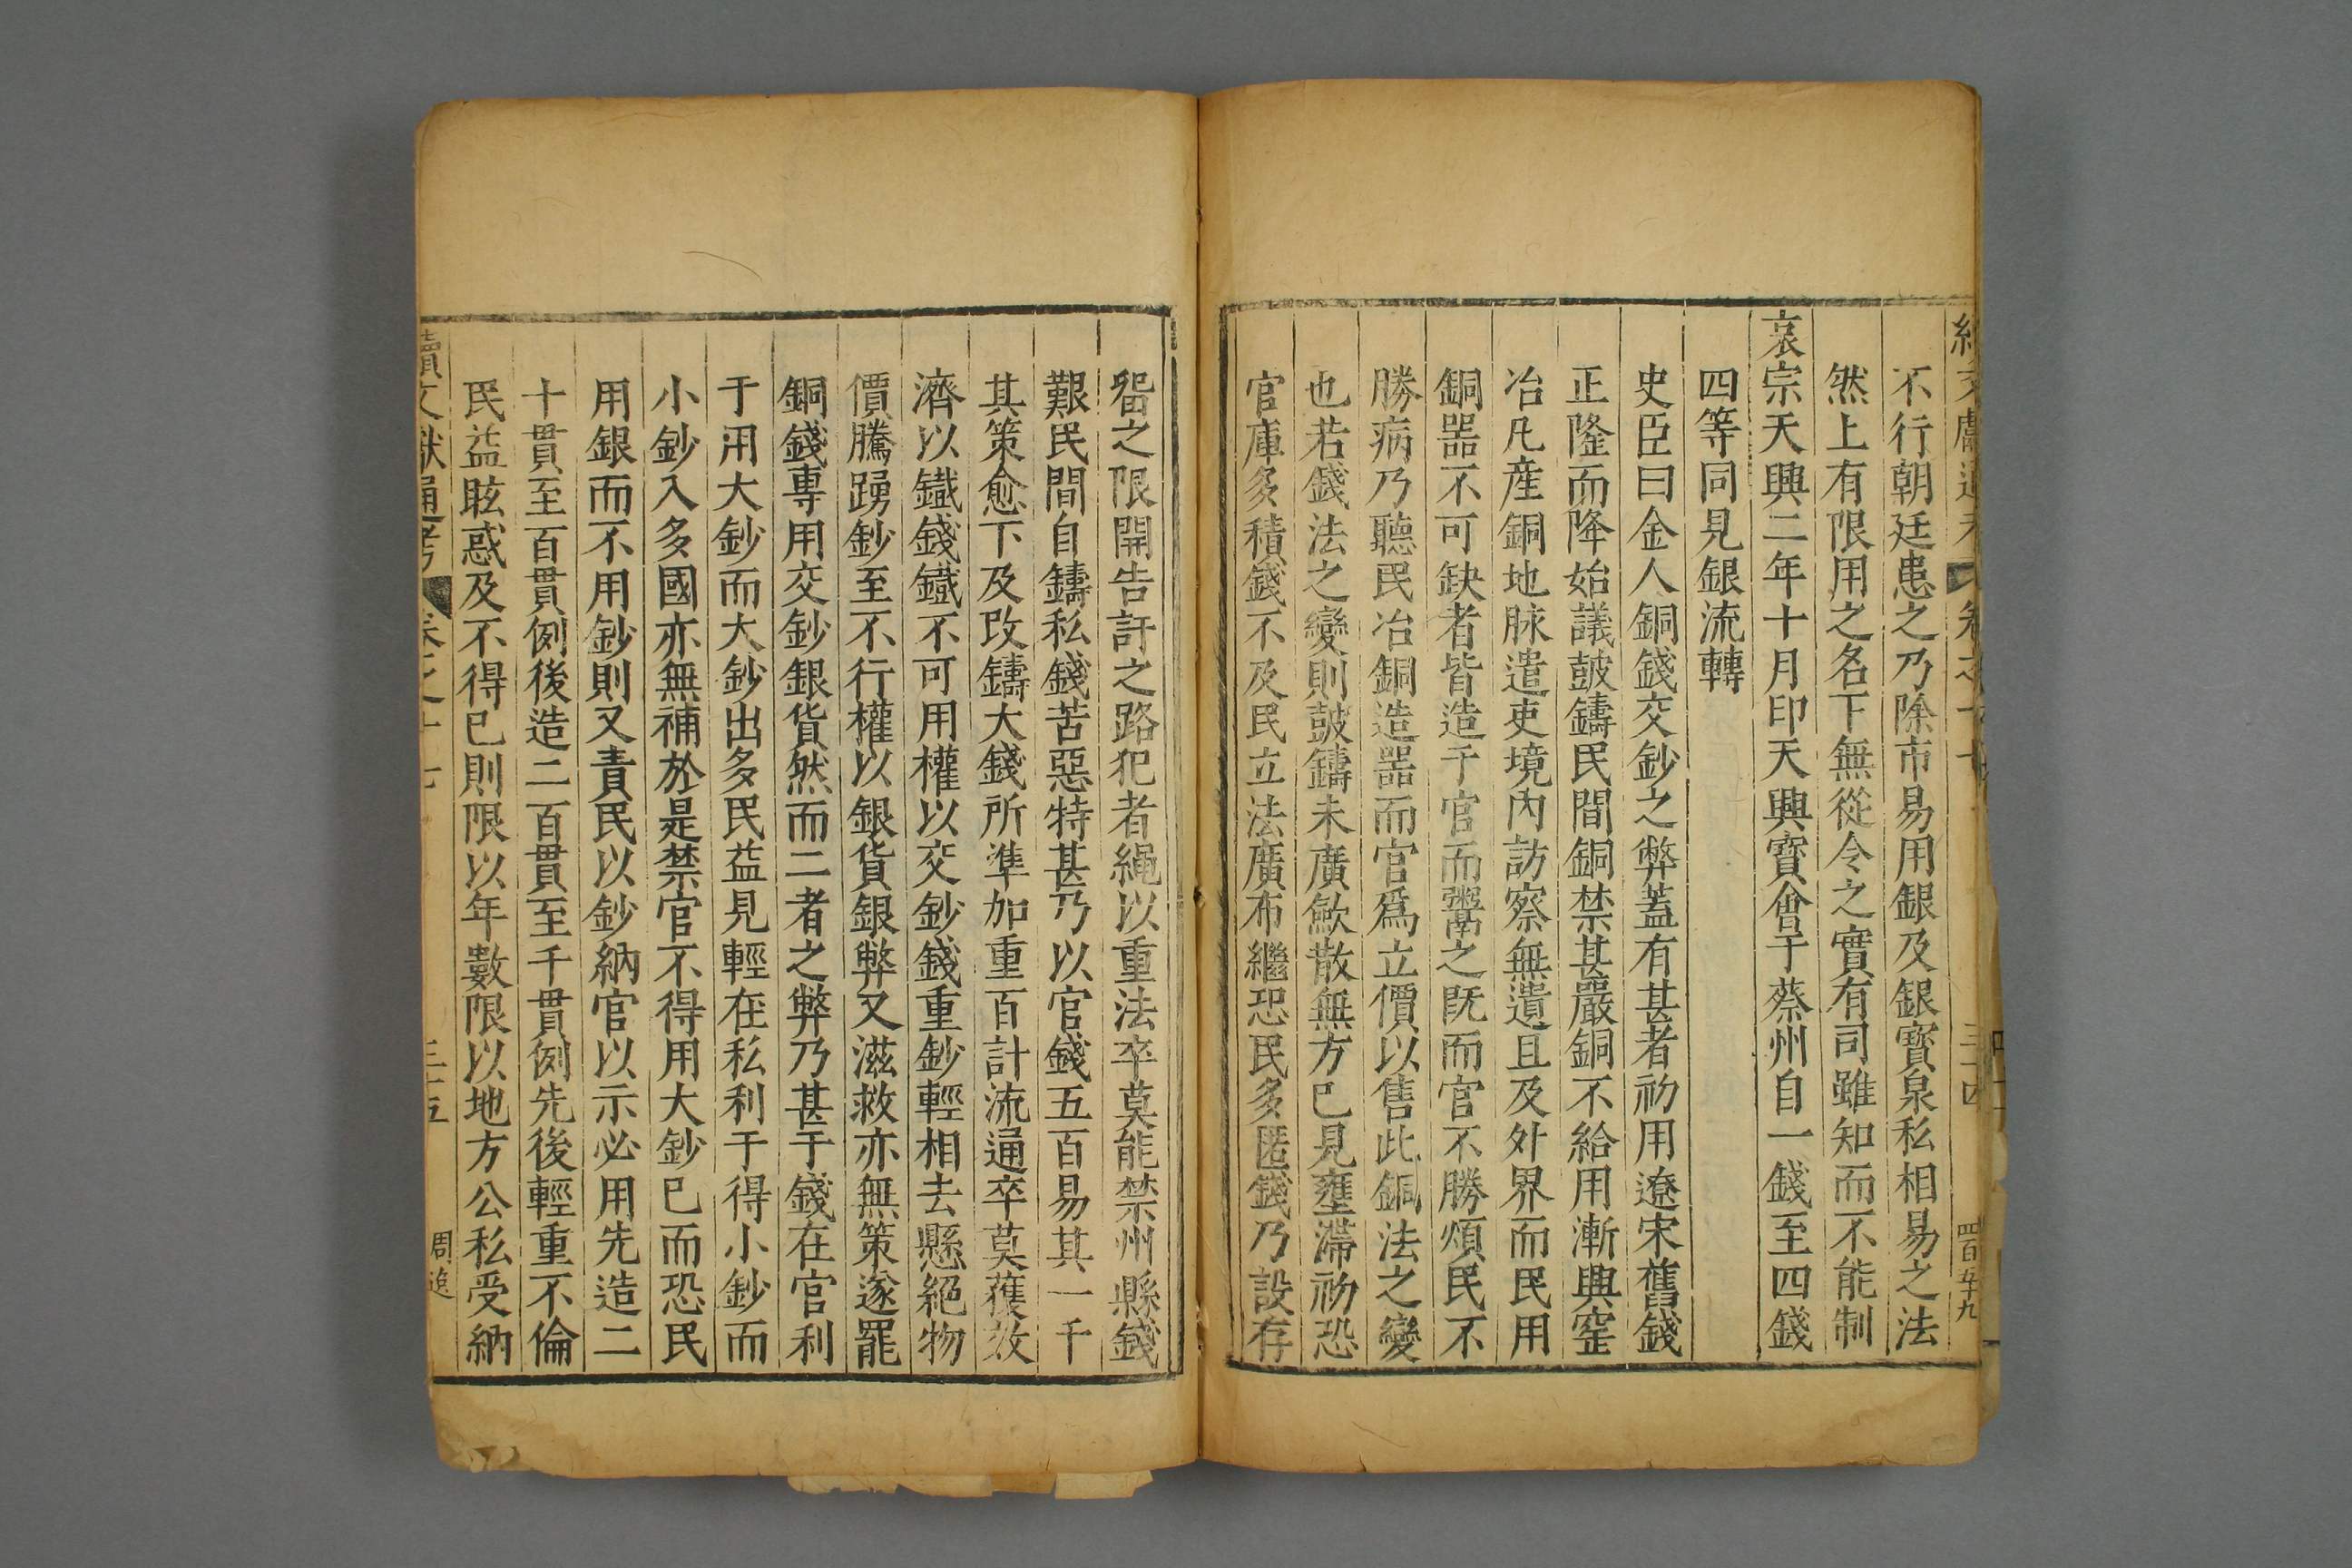 不行朝廷患之乃除市易用銀及銀寳泉私相易之法
然上有限用之名下無從令之實有司雖知而不能制
哀宗天興二年十月印天興寶會于蔡州自一錢至四錢
四等同見銀流轉
史臣曰金人銅錢交鈔之弊蓋有甚者初用遼宋舊錢
正隆而降始議鼓鑄民間銅禁甚嚴銅不給用漸興窑
冶凡產銅地脉遣吏境內訪察無遺且及外界而民用
銅噐不可缺者皆造于官而鬻之旣而官不勝煩民不
勝病乃聽民冶銅造噐而官爲立價以售此銅法之變
也若錢法之變則鼓鑄未廣歛散無方已見壅滯初恐
官庫多積錢不及民立法廣布繼恐民多匿錢乃設存
畱之限開告訐之路犯者繩以重法卒莫能禁州縣錢
艱民間自鑄私錢苦惡特甚乃以官錢五百易其一千
其策愈下及改鑄大錢所準加重百計流通卒莫獲效
濟以鐵錢鐵不可用權以交鈔錢重鈔輕相去懸絕物
價騰踴鈔至不行權以銀貨銀弊又滋救亦無策遂罷
銅錢專用交鈔銀貨然而二者之弊乃甚于錢在官利
于用大鈔而大鈔出多民益見輕在私利于得小鈔而
小鈔入多國亦無補於是禁官不得用大鈔已而恐民
用銀而不用鈔則又責民以鈔納官以示必用先造二
十貫至百貫例後造二百貫至千貫例先後輕重不倫
民益眩惑及不得已則限以年數限以地方公私受納
續文獻通考 卷之十七 三十五